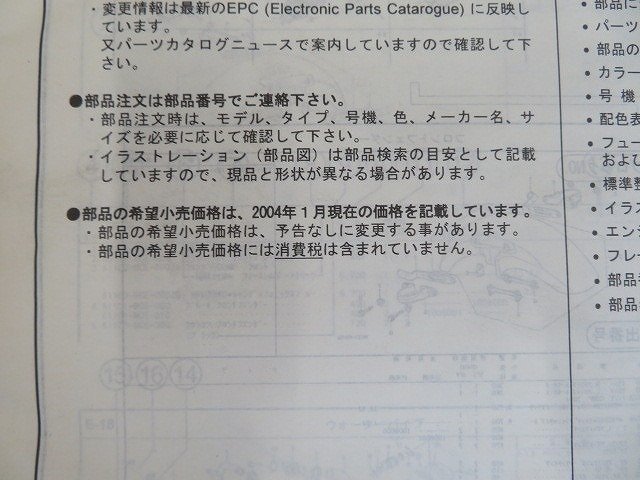 ・変更情報は最新のEPC (Electronic Parts Catarogue) に反映し
ています。
又パーツカタログニュースで案内していますので確認して下
さい。
●部品注文は部品番号でご連絡下さい。
・部品注文時は、モデル、タイプ、号機、色、メーカー名、サ
イズを必要に応じて確認して下さい。
・イラストレーション（部品図）は部品検索の目安として記載
していますので、現品と形状が異なる場合があります。
●部品の希望小売価格は、2004年１月現在の価格を記載しています。
・部品の希望小売価格は、予告なしに変更する事があります。
・部品の希望小売価格には消費税は含まれていません。
• 部品に
• パーツ
• 部品の
• カラー
• 号 機
• 配色表
• フュー
およひ
• 標準整
• イラス
• エンジ
• フレー
• 部品
• 部品